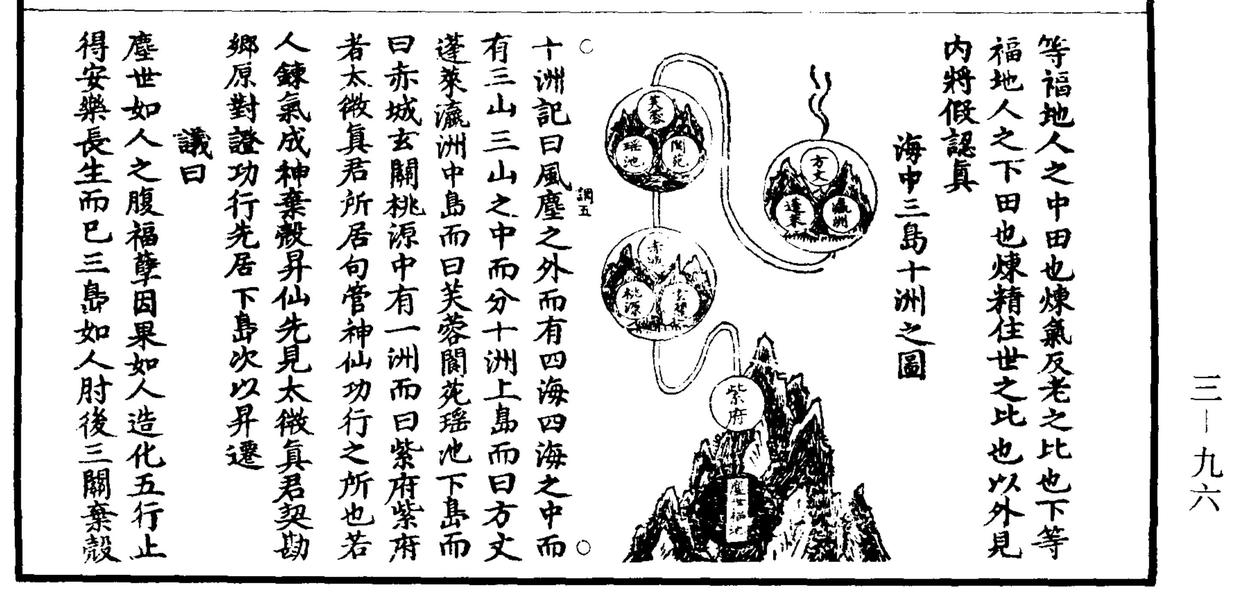 等福地人之中田也煉氣反老之比也下等
福地人之下田也煉精住世之比也以外見
内將假認真
海中三島十洲之圖
方丈
瀛洲
蓬萊
芙蓉
閬苑
瑶池
赤城
玄關
桃源
紫府
塵世福地
十洲記曰風塵之外而有四海四海之中而
調五
有三山三山之中而分十洲上島而曰方丈
蓬萊瀛洲中島而曰芙蓉閬苑瑶池下島而
曰赤城玄關桃源中有一洲而曰紫府紫府
者太微眞君所居句管神仙功行之所也若
人鍊氣成神棄殼昇仙先見太微眞君契勘
鄉原對證功行先居下島次以昇遷
議曰
塵世如人之腹福孽因果如人造化五行止
得安樂長生而已三島如人肘後三關棄殼
三—九六